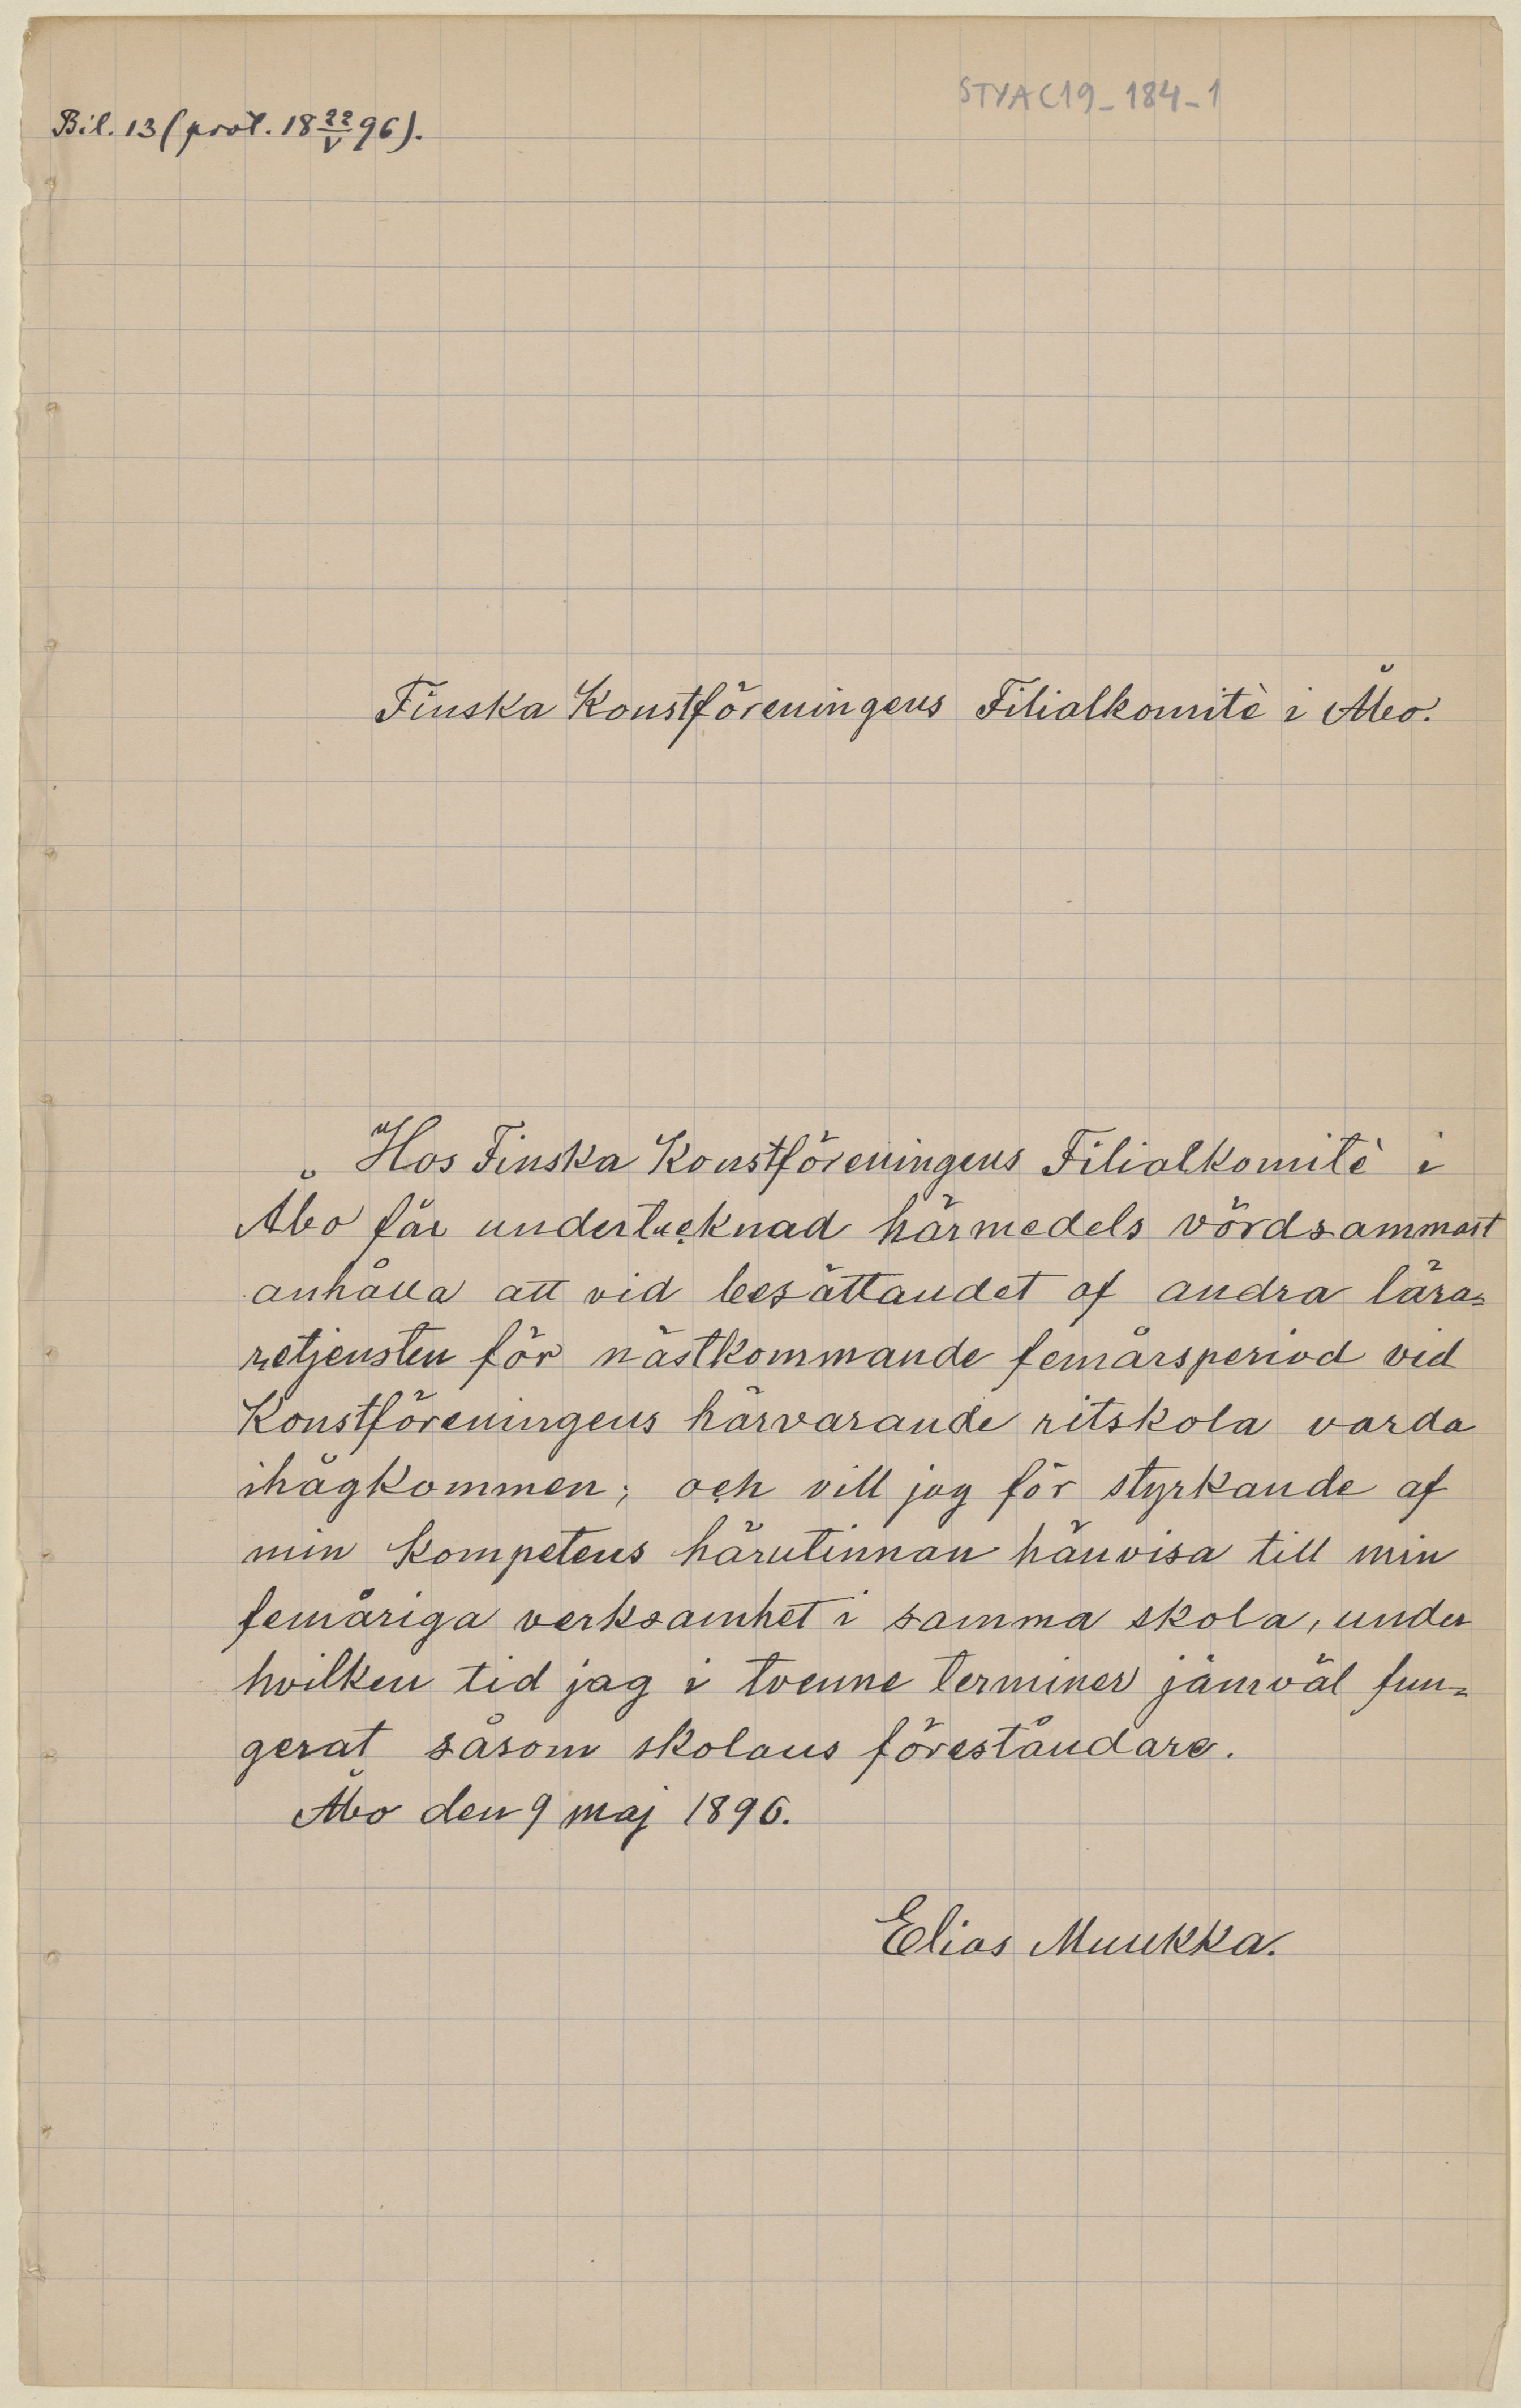 STYA C19_184-1
Bil. 13 (prot. 18 22/V 96).
Finska Konstföreningens Filialkomitè i Åbo.
Hos Finska Konstföreningens Filialkomitè i
Åbo får undertecknad härmedels vördsammast
anhålla att vid besättandet af andra lära=
retjensten för nästkommande femårsperiod vid
Konstföreningens härvarande ritskola varda
ihågkommen; och vill jag för styrkande af
min kompetens härutinnan hänvisa till min
femåriga verksamhet i samma skola, under
hvilken tid jag i tvenne terminer jämväl fun=
gerat såsom skolans föreståndare.
Åbo den 9 maj 1896.
Elias Muukka.